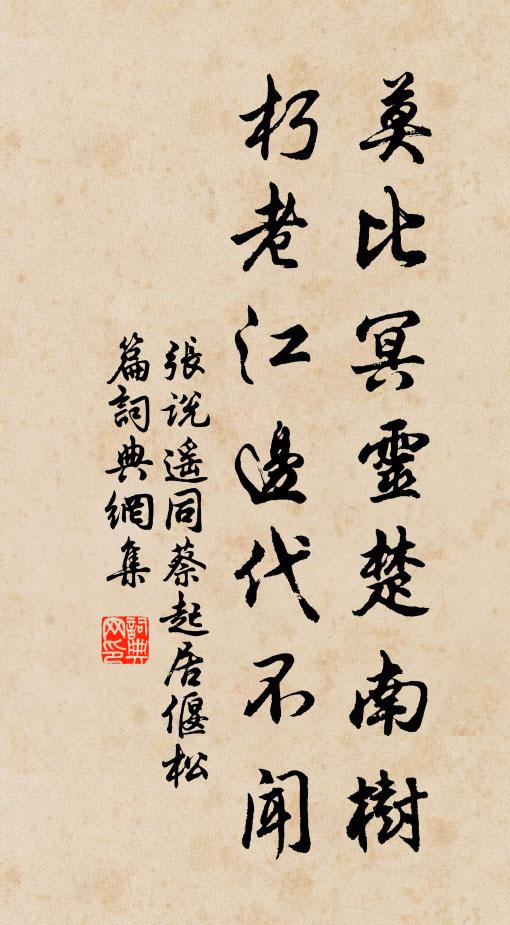 莫比冥靈楚南樹
朽老江邊代不聞
張說遥同蔡起居偃松
篇詞典網集
詞典網印